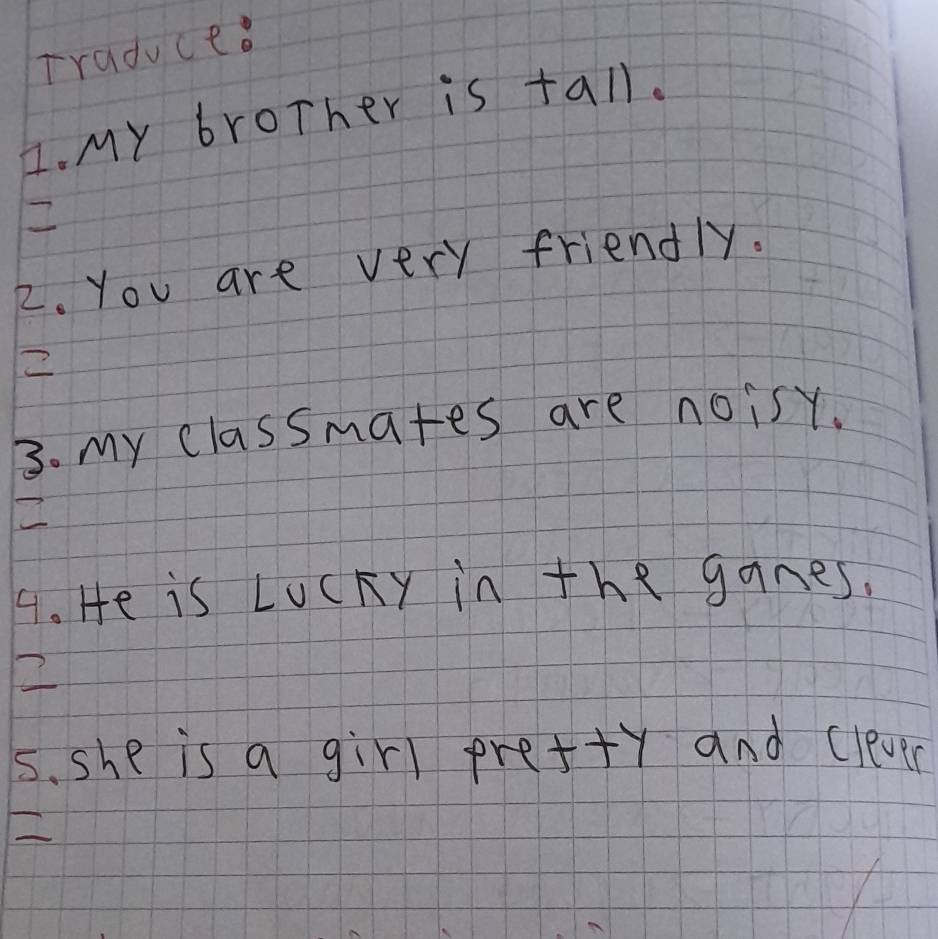 Traduce:
1. My brother is tall.
=
2. You are very friendly.
=
3. My classmates are noisy.
=
4. He is Lucky in the games.
=
5. she is a girl pretty and clever
=